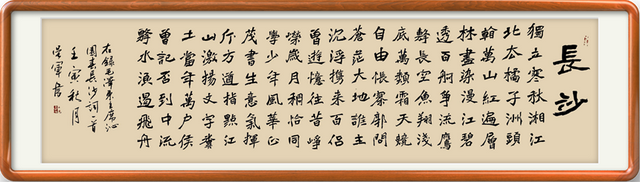 長沙
獨立寒秋湘江
北去橘子洲頭
看萬山紅遍層
林盡染漫江碧
透百舸爭流鷹
擊長空魚翔淺
底萬類霜天競
自由悵寥廓問
蒼茫大地誰主
沉浮攜來百侶
曾遊憶往昔崢
嶸歲月稠恰同
學少年風華正
茂書生意氣揮
斥方遒指點江
山激揚文字糞
土當年萬戶侯
曾記否到中流
擊水浪遏飛舟
右錄毛澤東主席沁
園春長沙詞一首
壬寅秋月
軍書